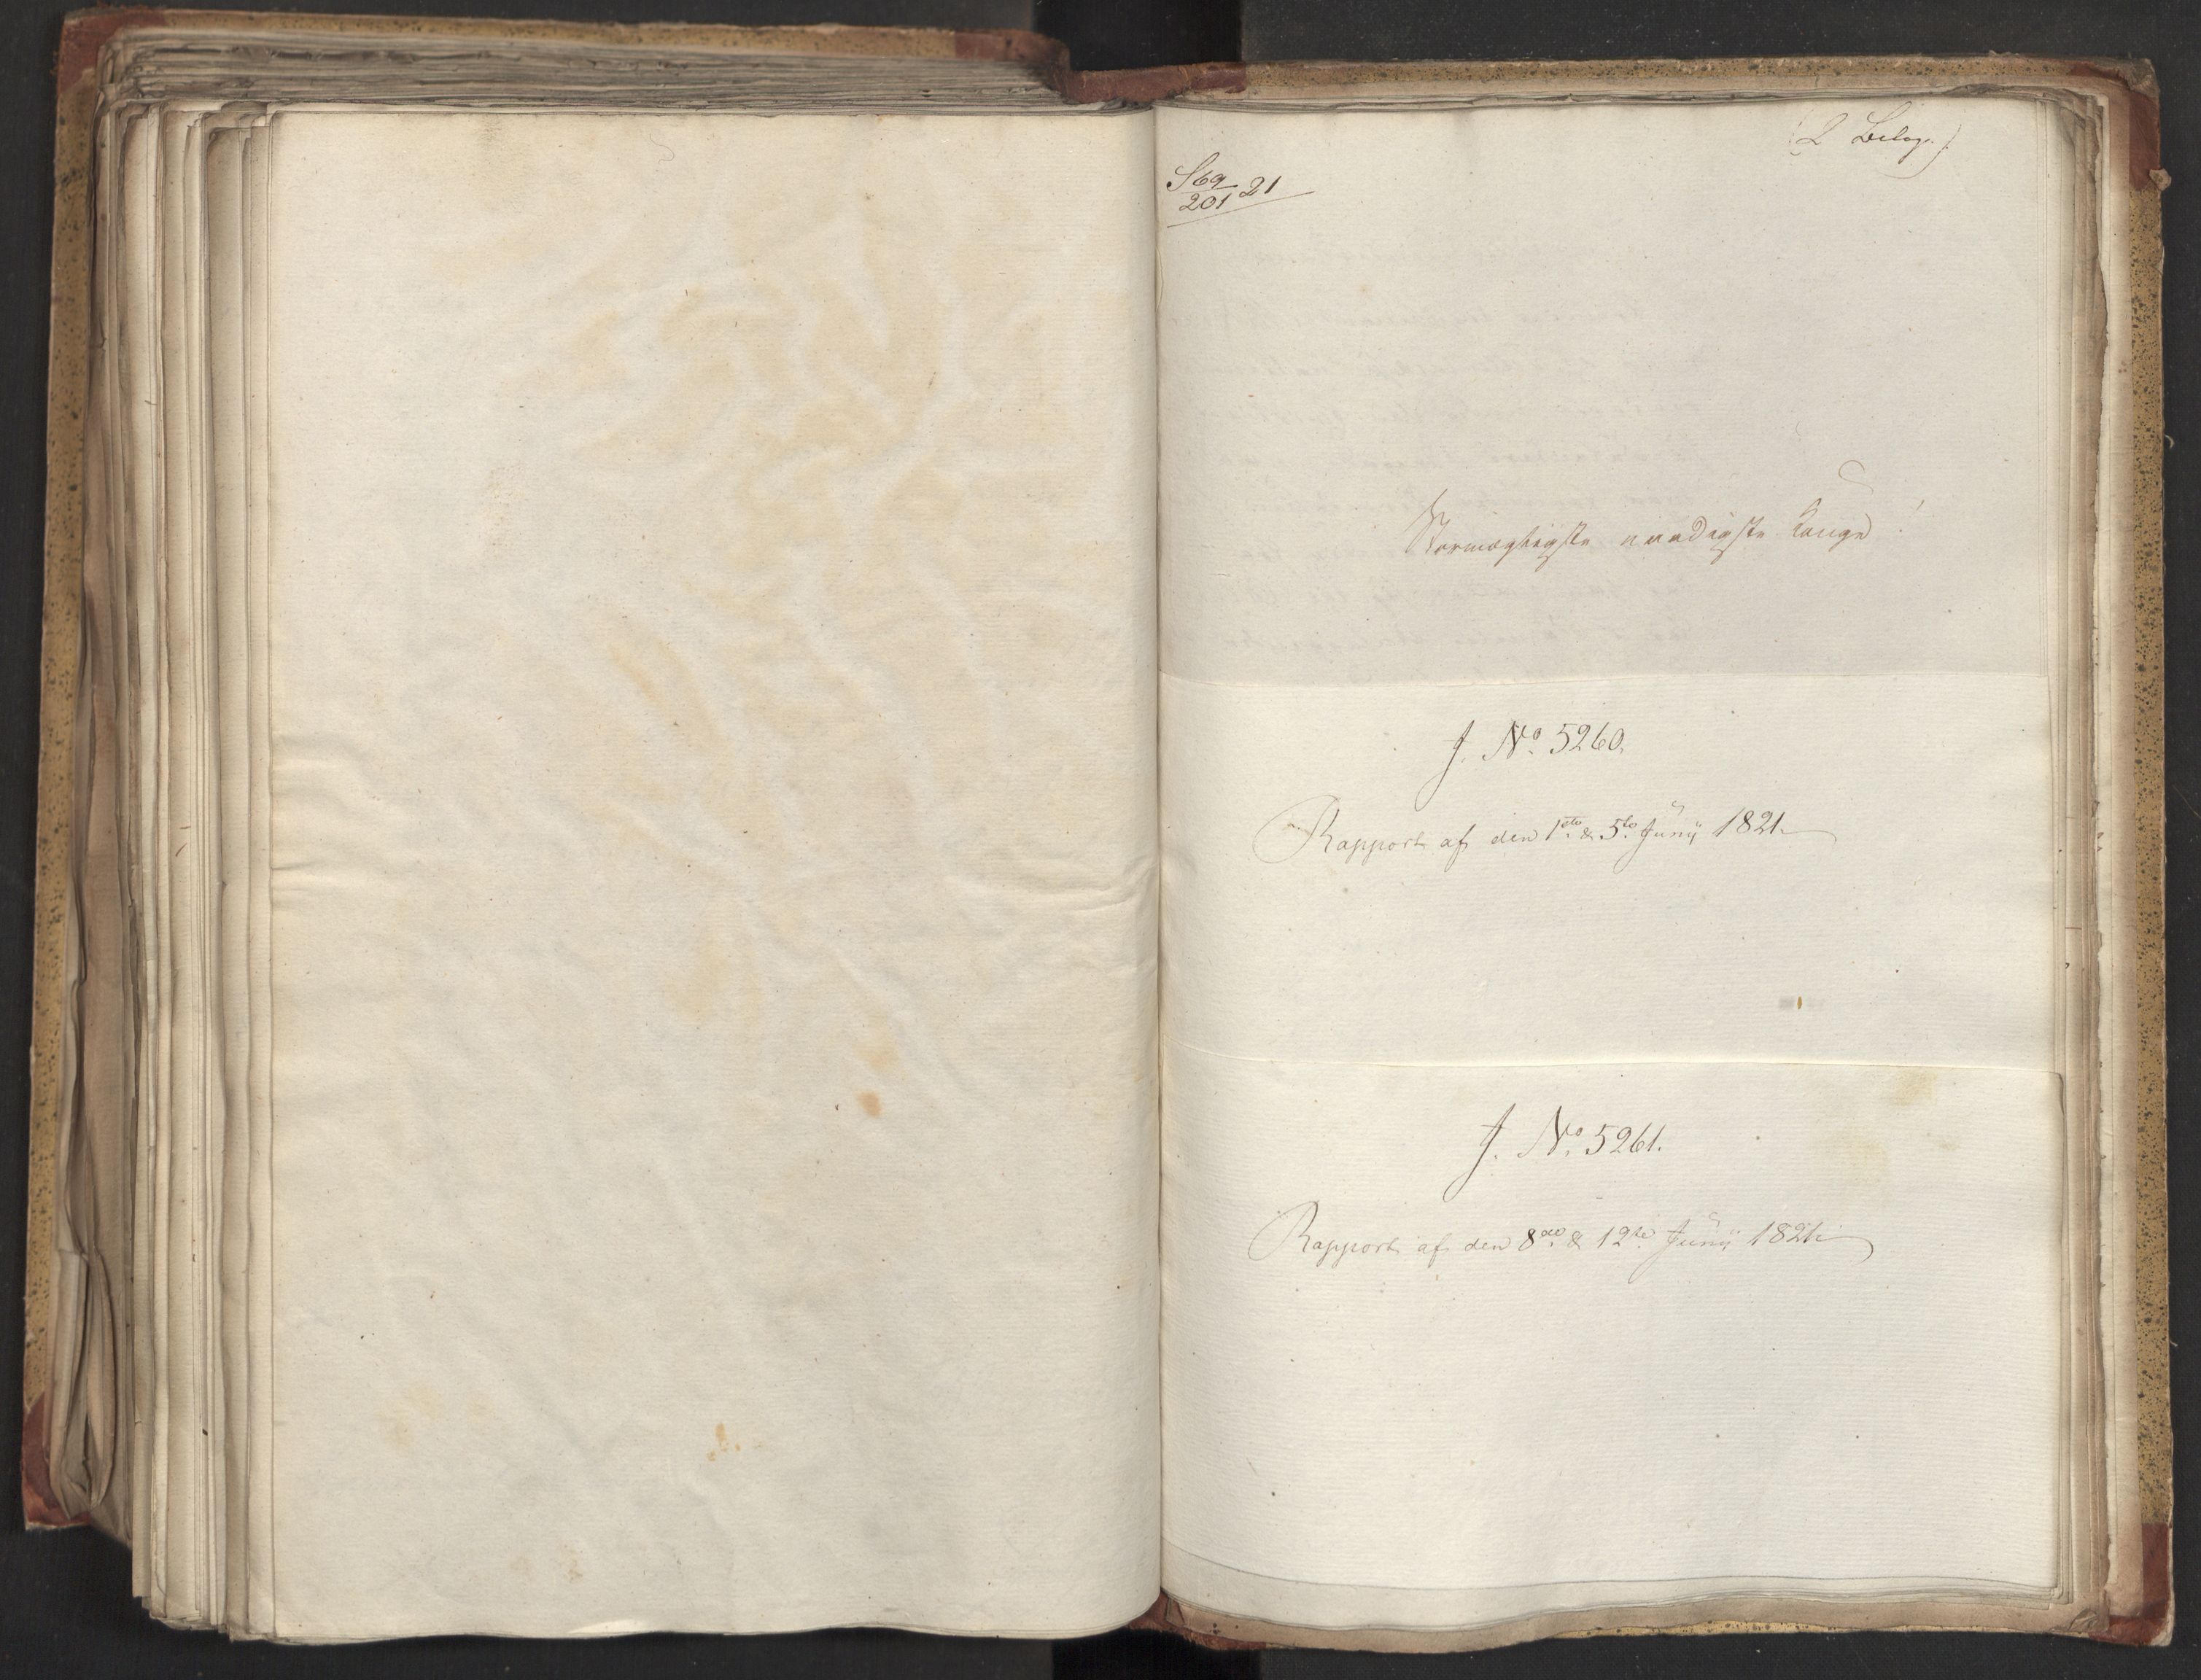 (2 Belag.)
S69
201 21
Stormægtigste naadigste Konge!
J. No. 5260.
Rapport af den 1ste & 5te Junÿ 1821.
J. No. 5261.
Rapport af den 8de & 12te Junÿ 1821.